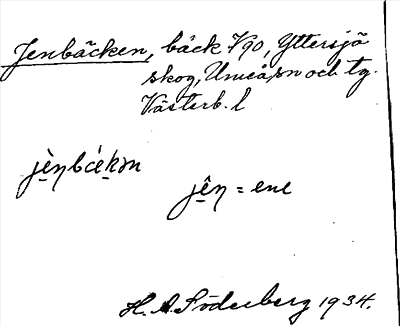 Jenbäcken, bäck V90, Yttersjö
skog, Umeå sn och tg.
Västerb. l
jènbä́kən
jên = ene
H. A. Söderberg 1934.